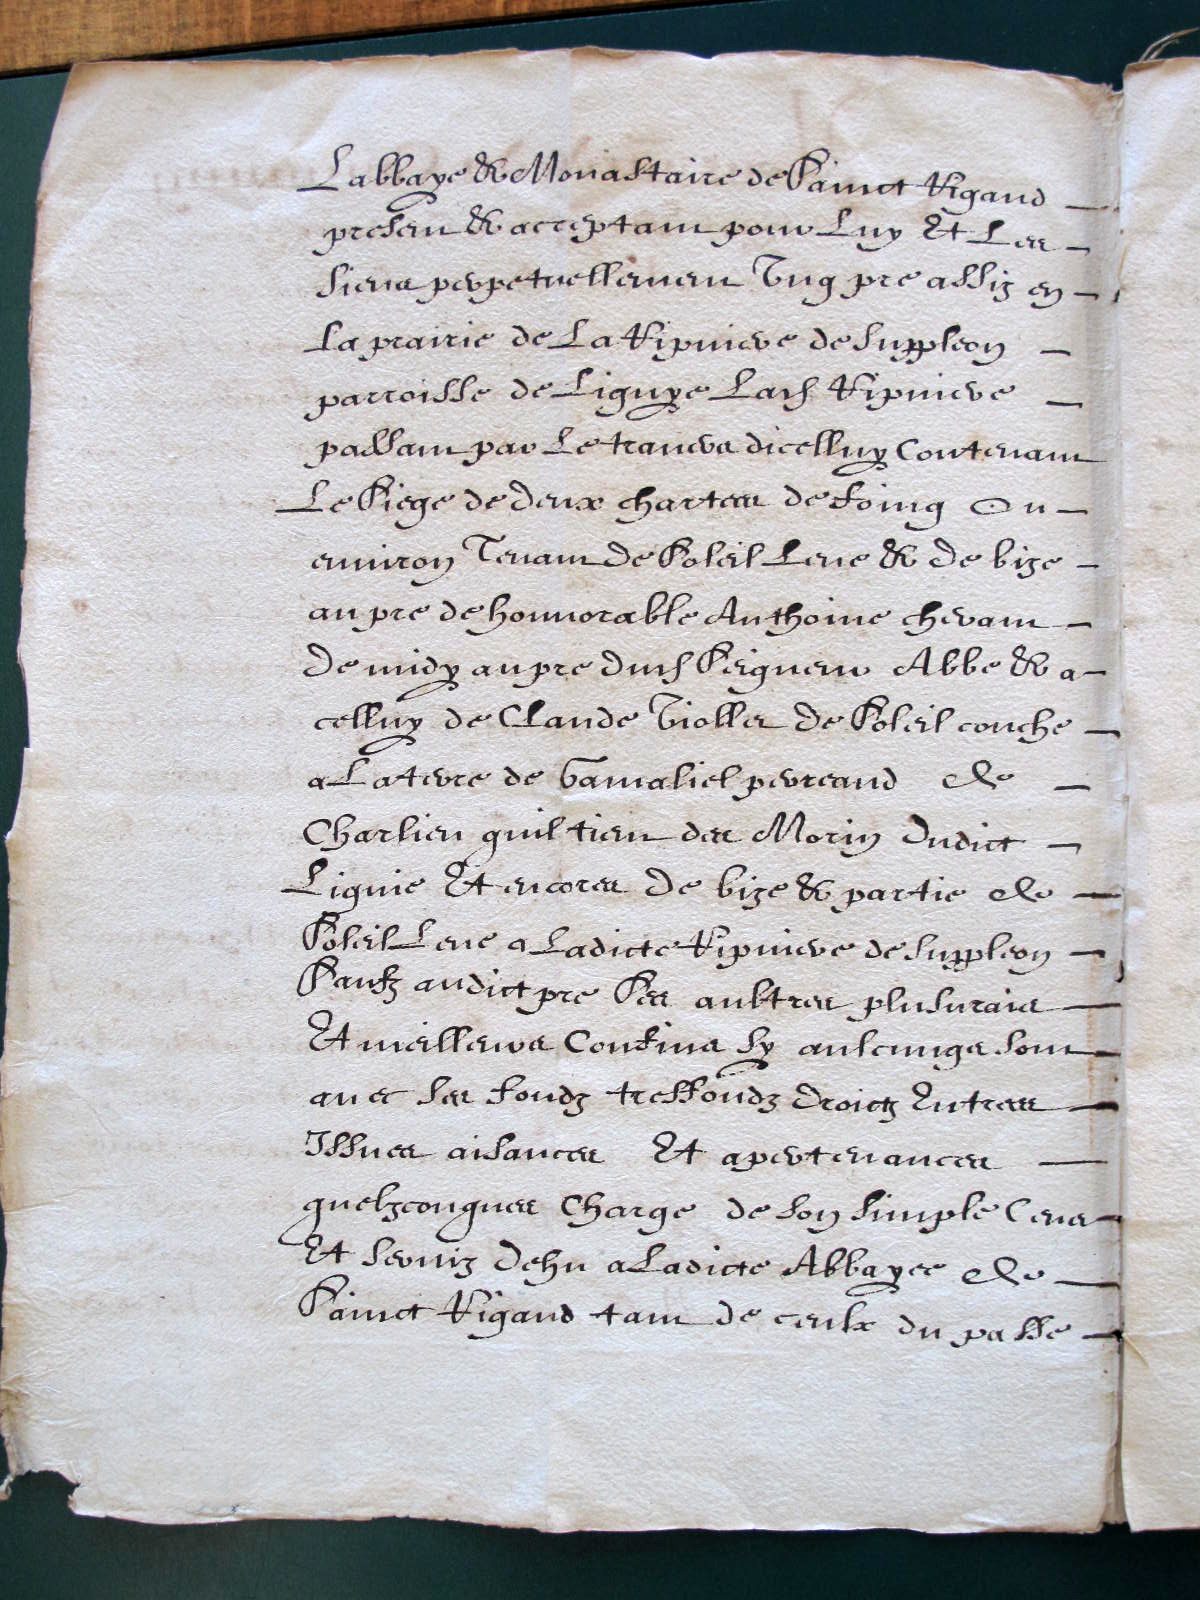 Labbaye & Monastaire de Sainct Rigaud
presen & acceptam pour Luy Et Les
siens perpetuellemen Ung pre assiz en
La prairie de La Ripviere de suppleon
parroisse de Lignye Lad Ripviere
passam par Le travers dicelluy Contenam
Le Siege de deux chartees de foing Ou
environ Tenam de Soleil Leve & de bize
au pre de honnorable Anthoine chevam
De midy au pre dud Seigneur Abbe & a
celluy de Claude Viollet De Soleil couche
a La terre de Gamaliel perreaud de
Charlieu quil tien des Morin Dudict
Lignie Et encores De bize & partie de
Soleil Leve a Ladicte Ripviere de suppleon
Saufz audict pre Ses aultres plusvrais
Et meilleurs Confins sy aulcungs som
avec ses fondz treffondz Droictz Entrees
Issues aisances Et apertenances
quelzconques Charge de son simple Cens
Et serviz Dehu a Ladicte Abbayee de
Sainct Rigaud tam de ceulx du passe